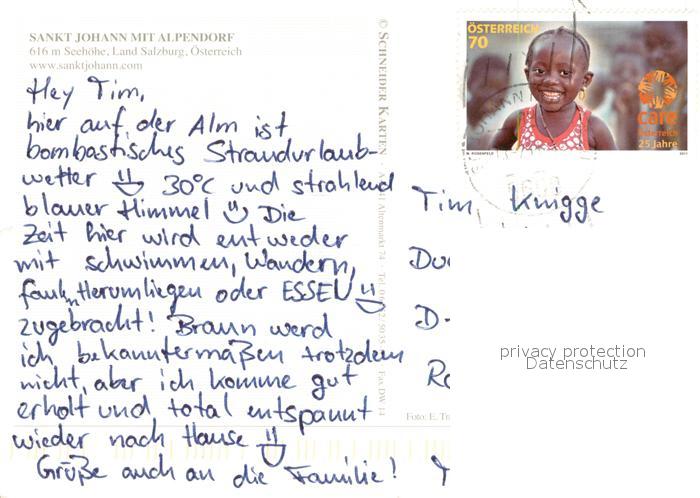 SANKT JOHANN MIT ALPENDORF
616 m Seehöhe, Land Salzburg, Österreich
www.sanktjohann.com
Hey Tim,
hier auf der Alm ist
bombastisches Strandurlaub-
wetter 30°C und strahlend
blauer Himmel Die
Zeit hier wird entweder
mit schwimmen, Wandern,
faulem Herumliegen oder ESSEN
zugebracht! Braun werd
ich bekanntermaßen trotzdem
nicht, aber ich komme gut
erholt und total entspannt
wieder nach Hause
Grüße auch an die Familie!
© SCHNEIDER KARTEN
Altenmarkt 74
Tel.
Fax DW 14
Foto: E.
ÖSTERREICH
70
care
österreich
25 Jahre
ROSENFELD
2011
Tim Knigge
D-
privacy protection
Datenschutz